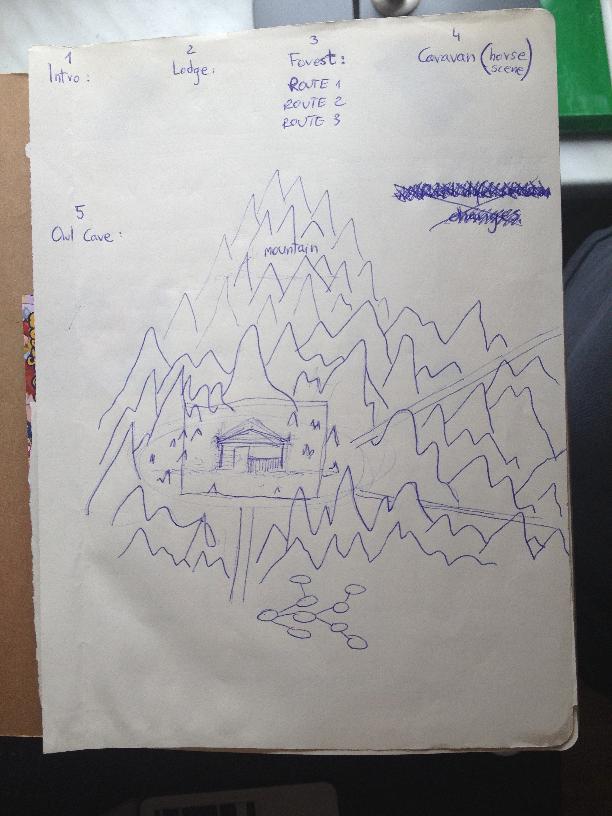 1
Intro:
2
Lodge:
3
Forest:
ROUTE 1
ROUTE 2
ROUTE 3
4
Caravan (horse
scene)
changes
5
Owl Cave:
mountain